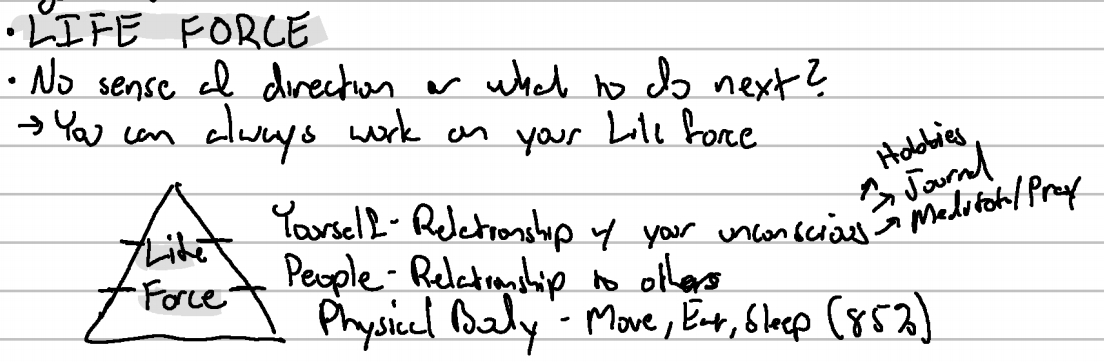 • LIFE FORCE
• No sense of direction or what to do next?
→ You can always work on your Life Force
Hobbies
Journal
Meditate/Pray
Yourself - Relationship w/ your unconscious
People - Relationship to others
Physical Body - Move, Eat, Sleep (85%)
Life
Force